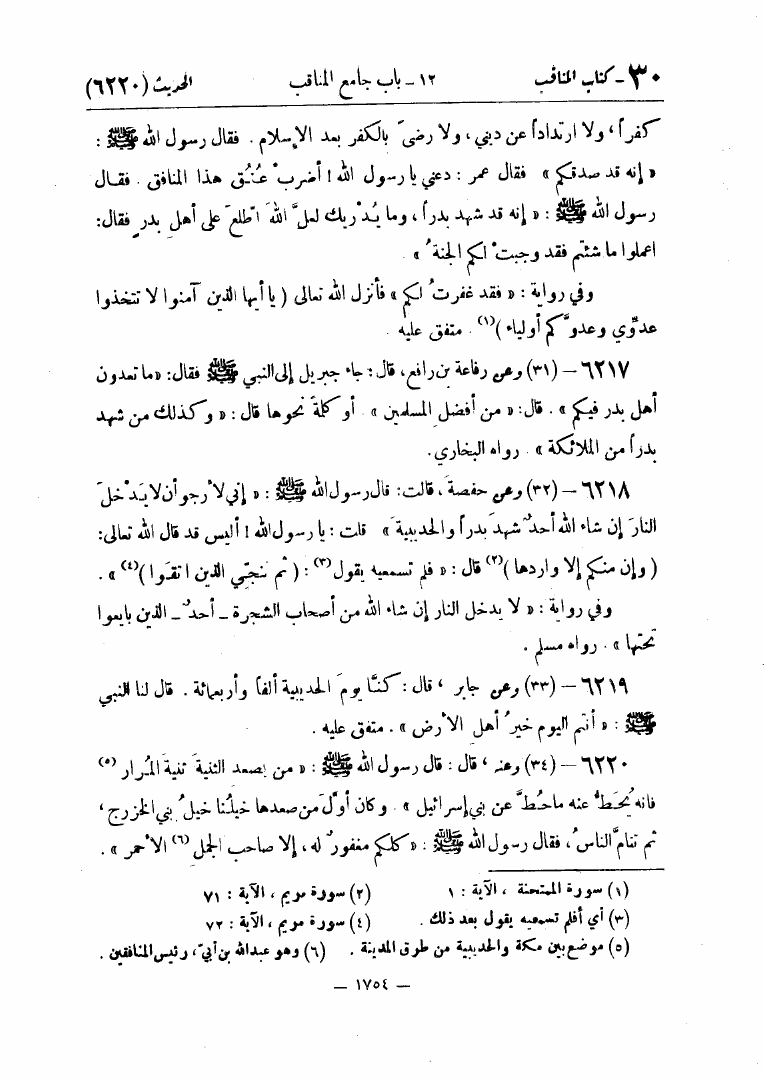 ٣٠ - كتاب المناقب ١٢ - باب جامع المناقب الحديث (٦٢٢٠)
كفراً ، ولا ارتداداً عن ديني ، ولا رضىً بالكفر بعد الإسلام . فقال رسول الله ﷺ :
« إنه قد صدقكم » فقال عمر : دعني يا رسول الله ! أضربْ عُنُق هذا المنافق . فقال
رسول الله ﷺ : « إنه قد شهد بدراً ، وما يُدْريك لعلَّ اللهَ اطّلعَ على أهلِ بدرٍ فقال:
اعملوا ما شئتم فقد وجبتْ لكم الجنةُ » .
وفي رواية : « فقد غفرتُ لكم » فأنزل الله تعالى ( يا أيها الذين آمنوا لا تتخذوا
عدوِّي وعدوَّكم أولياء )(١) . متفق عليه .
٦٢١٧ – (٣١) وعن رفاعة بن رافع ، قال : جاء جبريل إلى النبي ﷺ فقال: «ما تعدون
أهل بدر فيكم » . قال: « من أفضلِ المسلمين » . أو كلمةً نحوها قال : « وكذلك من شهد
بدراً من الملائكة » . رواه البخاري.
٦٢١٨ – (٣٢) وعن حفصةَ ، قالت: قال رسول الله ﷺ : « إني لأرجو أن لا يَدْخلَ
النارَ إن شاء الله أحدٌ شهدَ بدراً والحديبيةَ » قلت : يا رسول الله ! أليس قد قال الله تعالى:
( وإن منكم إلا واردها )(٢) قال : « فلم تسمعيه يقول(٣) : ( ثم ننجّي الذين اتقَوا )(٤) » .
وفي رواية : « لا يدخل النار إن شاء الله من أصحاب الشجرة – أحدٌ – الذين بايعوا
تحتها » . رواه مسلم .
٦٢١٩ – (٣٣) وعن جابر ، قال : كنَّا يومَ الحديبية ألفاً وأربعمائة . قال لنا النبي
ﷺ : « أنتم اليوم خيرُ أهلِ الأرض » . متفق عليه .
٦٢٢٠ – (٣٤) وعنه ، قال : قال رسول الله ﷺ : « من يصعد الثنيةَ ثنيةَ المُرار (٥)
فانه يُحَطُّ عنه ما حُطَّ عن بني إسرائيل » . وكان أوّلَ من صعدها خيلُنا خيلُ بني الخزرج ،
ثم تتامَّ الناسُ ، فقال رسول الله ﷺ : « كلكم مغفورٌ له ، إلا صاحب الجمل (٦) الأحمر » .
(١) سورة الممتحنة ، الآية : ١ (٢) سورة مريم ، الآية : ٧١
(٣) أي أفلم تسمعيه يقول بعد ذلك . (٤) سورة مريم ، الآية : ٧٢
(٥) موضع بين مكة والحديبية من طرق المدينة . (٦) وهو عبدالله بن أبيّ ، رئيس المنافقين .
– ١٧٥٤ –